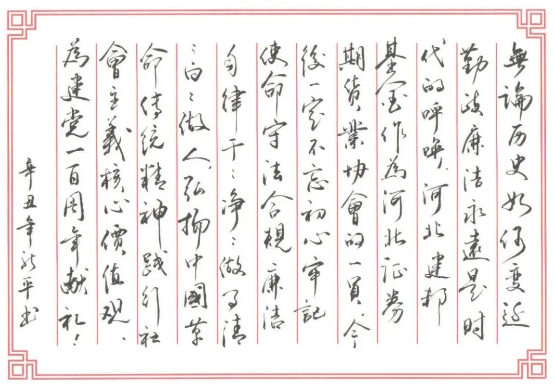 無論历史如何变迁
勤政廉洁永遠是时
代的呼唤,河北建邦
基金作為河北证券
期货業协會的一員,今
後一定不忘初心牢記
使命守法合規廉洁
自律干:净:做事清
:白:做人,弘扬中國革
命傳统精神,践行社
會主義核心價值观、
為建党一百周年献礼!
辛丑年 平书